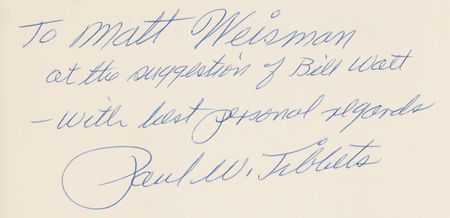 To Matt Weisman
at the suggestion of Bill Watt
- with best personal regards
Paul W. Tibbets